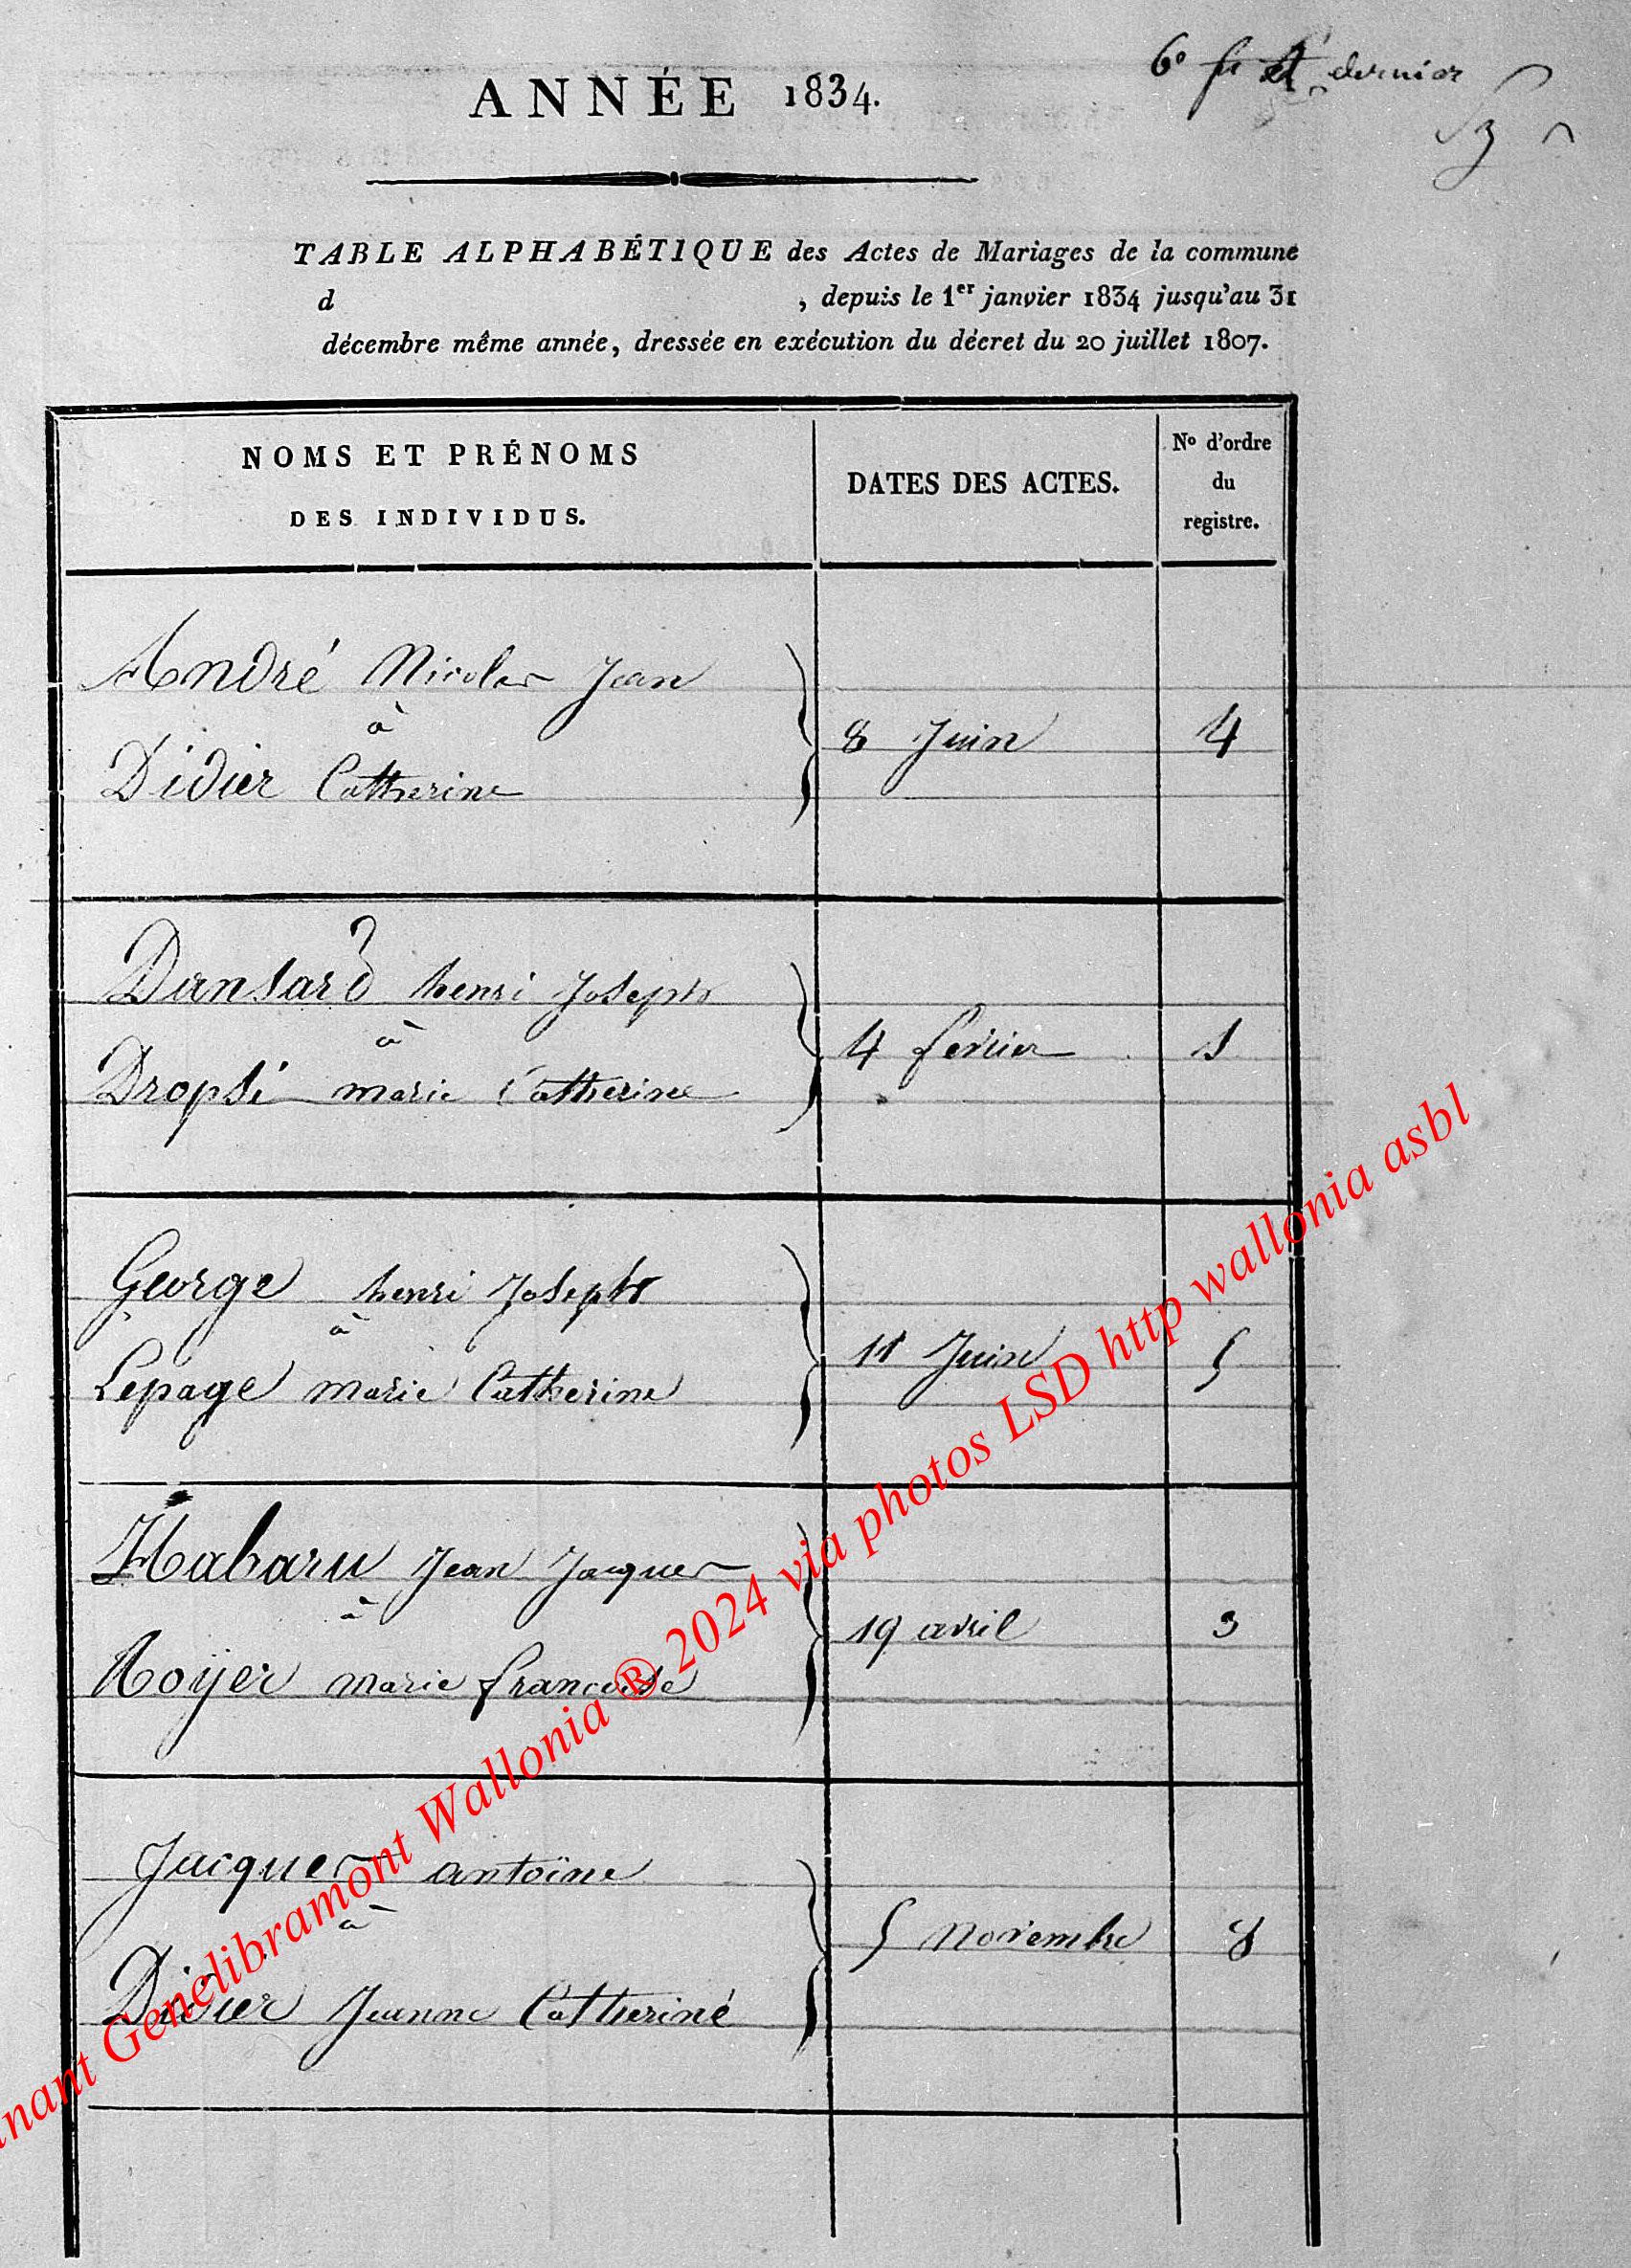 6e et dernier
ANNÉE 1834.
TABLE ALPHABÉTIQUE des Actes de Mariages de la commune
d , depuis le 1er janvier 1834 jusqu'au 31
décembre même année, dressée en exécution du décret du 20 juillet 1807.
NOMS ET PRÉNOMS
DES INDIVIDUS.
DATES DES ACTES.
No d'ordre
du
registre.
André Nicolas Jean
à
Didier Catherine
8 Juin 4
Dansard henri Joseph
à
Dropsi marie Catherine
4 fevrier 1
George henri Joseph
à
Lepage marie Catherine
11 Juin 5
Habaru Jean Jacques
à
Noyer marie francoise
19 avril 3
Jacques antoine
à
Didier Jeanne Catherine
5 Novembre 8
Genelibramont Wallonia ® 2024 via photos LSD http wallonia asbl